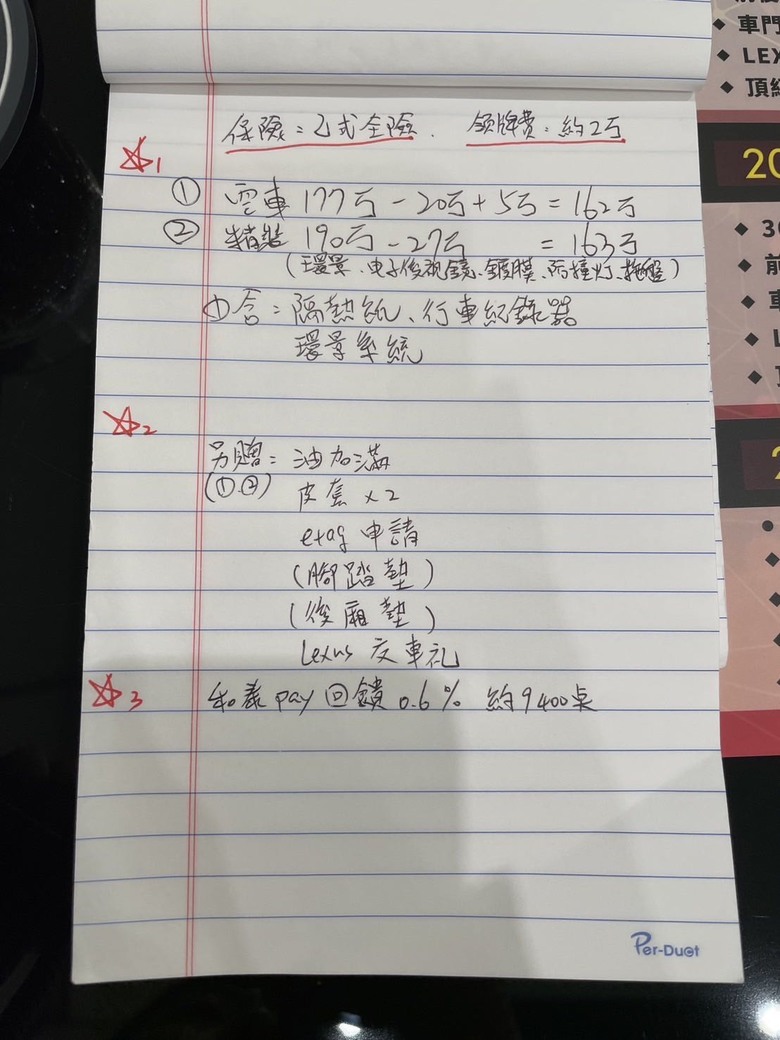 保險=乙式全險. 領牌費:約2万
☆1
① 空車 177万 - 20万 + 5万 = 162万
② 精裝 190万 - 27万 = 163万
(環景、电子後視鏡、鍍膜、防撞灯、拖盤)
①含:隔熱紙、行車紀錄器
環景系統
☆2
另贈:油加滿
(①.②) 皮套 x2
etag 申請
(腳踏墊)
(後廂墊)
Lexus 交車礼
☆3 和泰 pay 回饋 0.6% 約9400点
Per-Duet
車門
LEX
頂級
20